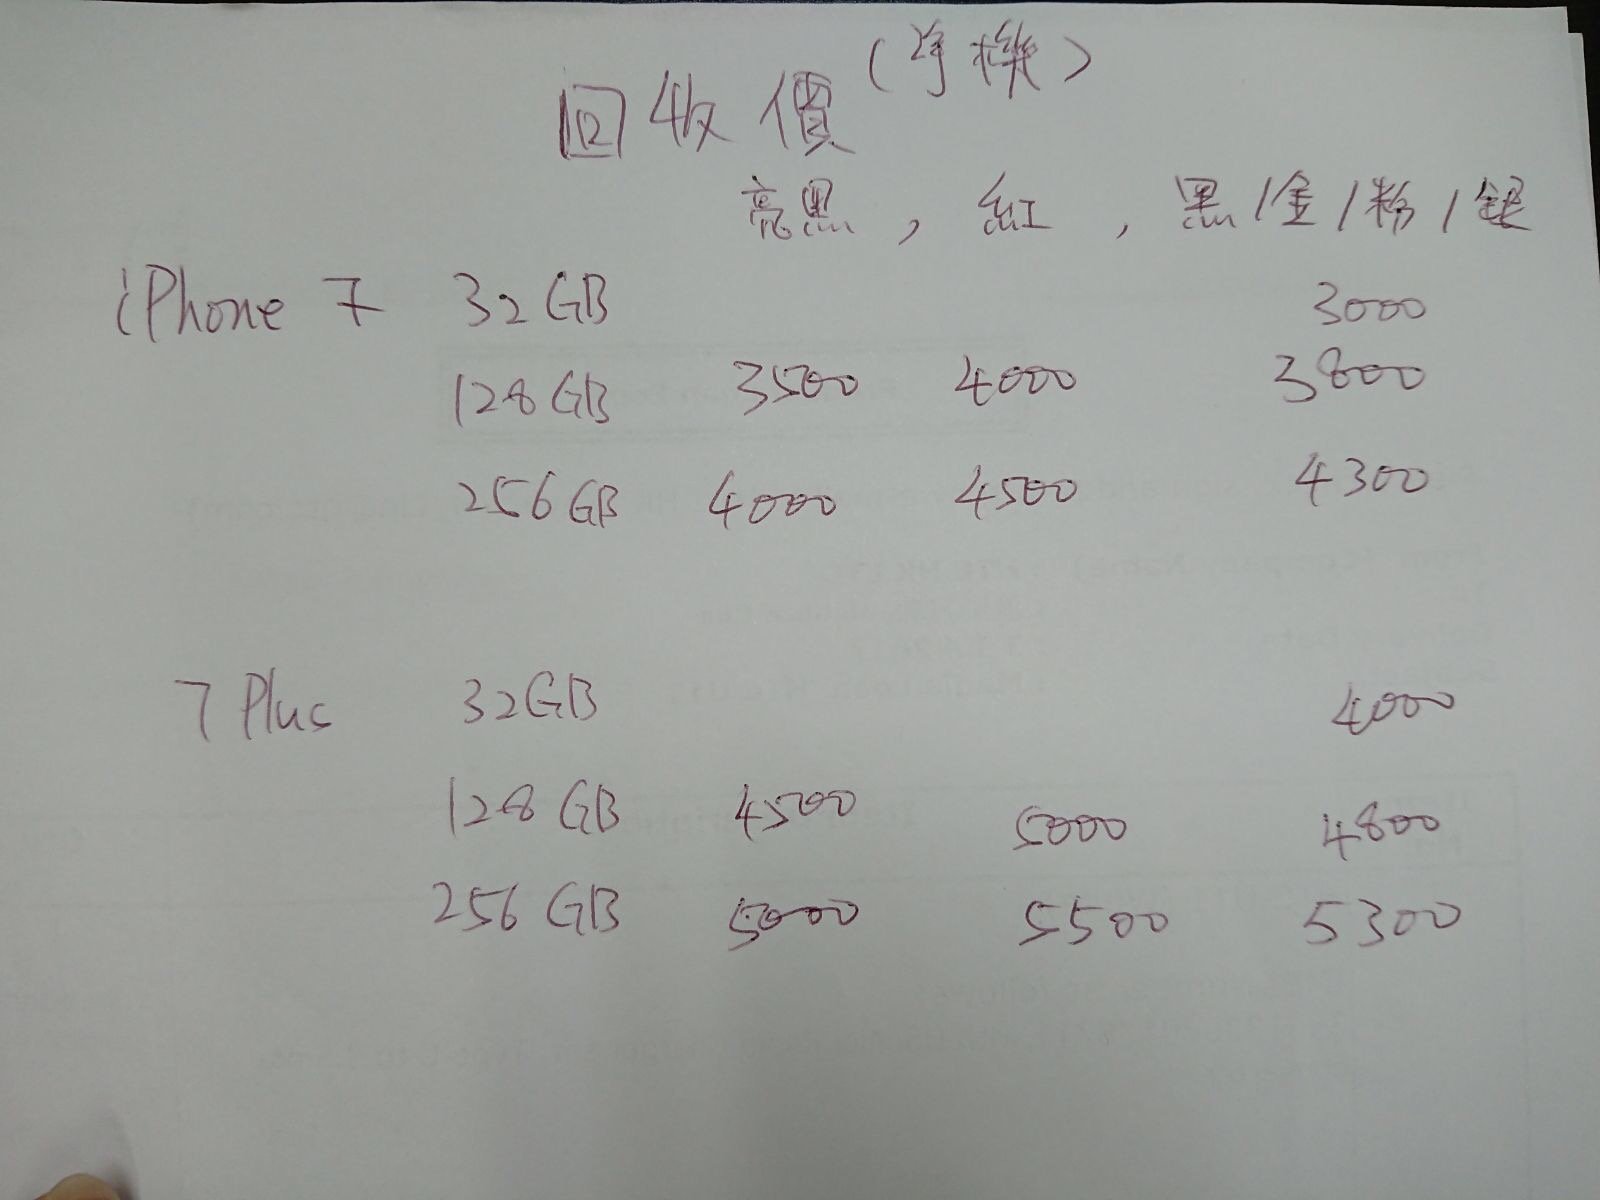 回收價(淨機)
亮黑, 紅, 黑/金/粉/銀
iPhone 7 32GB 3000
128GB 3500 4000 3800
256GB 4000 4500 4300
7 Plus 32GB 4000
128GB 4500 5000 4800
256GB 5000 5500 5300